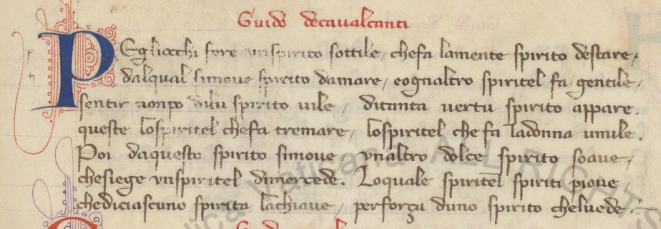 Guido decavalcanti
PEgliocchi fere vnspirito sottile, chefa lamente spirito destare,
dalqual simoue spirito damare, eognaltro spiritel fa gentile,
sentir nonpo dilu spirito uile, ditanta uertu spirito appare.
queste lospiritel chefa tremare, lospiritel che fa ladonna umile.
Poi daquesto spirito simoue, vnaltro dolce spirito soaue,
chesiege vnspiritel dimercede. Loquale spiritel spiriti pioue
chediciascuno spirita lachiaue, perforça duno spirito cheluede.